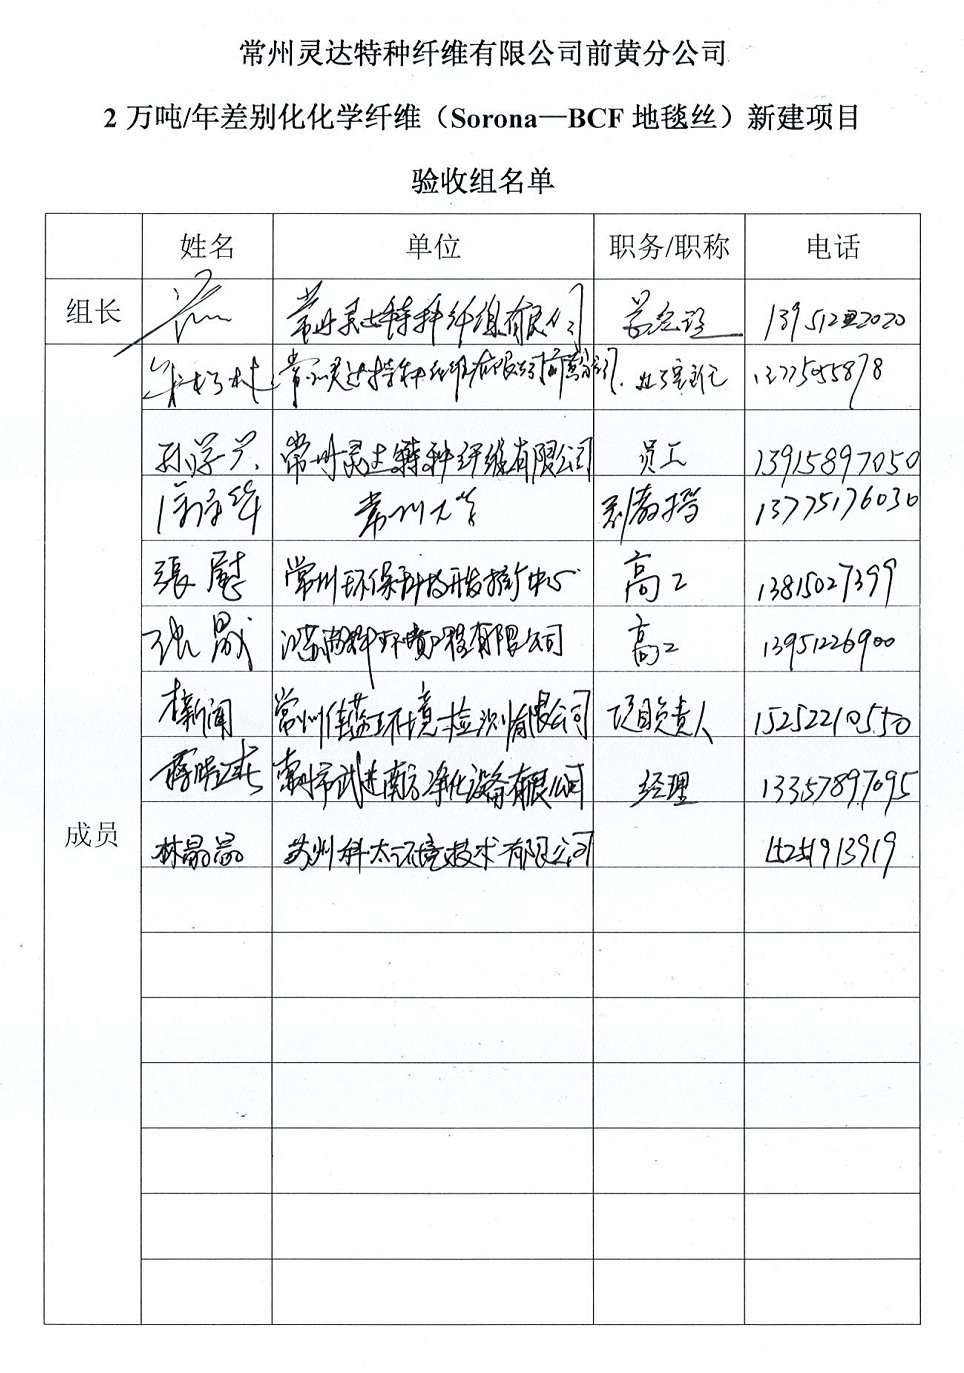 常州灵达特种纤维有限公司前黄分公司
2 万吨/年差别化化学纤维（Sorona—BCF 地毯丝）新建项目
验收组名单
姓名 单位 职务/职称 电话
组长 常州灵达特种纤维有限公司 总经理 13951222020
常州灵达特种纤维有限公司前黄分公司 13775055878
孙学兴 常州灵达特种纤维有限公司 员工 13915897050
常州大学 副教授 13775176030
張慰 常州环保科技开发推广中心 高工 13815027399
张晟 江苏尚科环境工程有限公司 高工 13951226900
新闻 常州佳蓝环境检测有限公司 项目负责人 15252210550
蒋 常州市武进南方净化设备有限公司 经理 13357897095
成员 林晶晶 苏州科太环境技术有限公司 913919